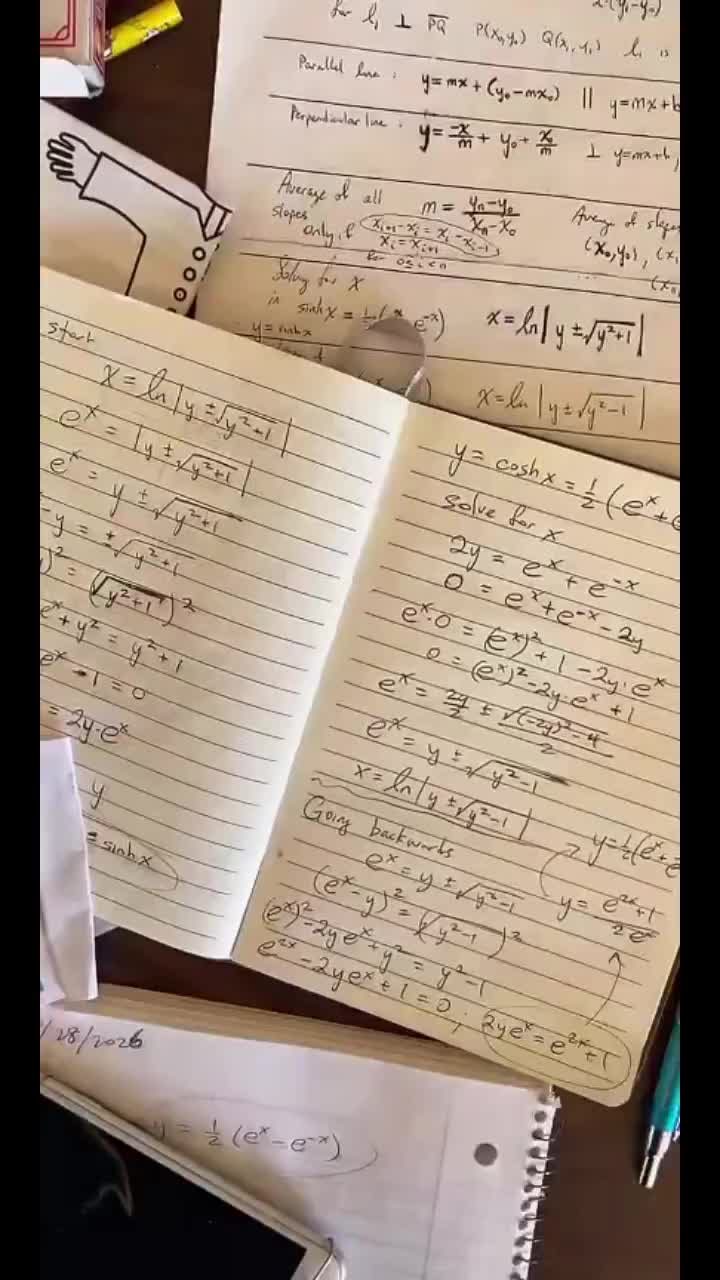 for l₁ ⊥ PQ P(x₀,y₀) Q(x₁,y₁) l₁ is
Parallel line : y=mx+(y₀-mx₀) || y=mx+b
Perpendicular line : y=-x/m + y₀+ x₀/m ⊥ y=mx+b,
Average of all slopes m = (yₙ-y₀)/(xₙ-x₀) Average of slopes
only if xᵢ₊₁-xᵢ=xᵢ-xᵢ₋₁ (x₀,y₀), (x₁
xᵢ=xᵢ₊₁
for 0≤i<n
Solving for x
in sinhx = e⁻ˣ) x=ln|y±√(y²+1)|
y=sinhx
x=ln|y±√(y²-1)|
start
x=ln|y±√(y²+1)|
eˣ=|y±√(y²+1)|
eˣ=y±√(y²+1)
-y=±√(y²+1)
)²=(√(y²+1))²
eˣ+y²=y²+1
eˣ-1=0
=2y·eˣ
y
= sinhx
y=coshx=½(eˣ+e
Solve for x
2y=eˣ+e⁻ˣ
0=eˣ+e⁻ˣ-2y
eˣ·0=(eˣ)²+1-2y·eˣ
0=(eˣ)²-2y·eˣ+1
eˣ=2y/2±√((-2y)²-4)/2
eˣ=y±√(y²-1)
x=ln|y±√(y²-1)|
Going backwards
eˣ=y±√(y²-1)
(eˣ-y)²=(√(y²-1))²
(eˣ)²-2yeˣ+y²=y²-1
e²ˣ-2yeˣ+1=0; 2yeˣ=e²ˣ+1
y=(e²ˣ+1)/2eˣ
y=½(eˣ+e
/28/2026
y=½(eˣ-e⁻ˣ)